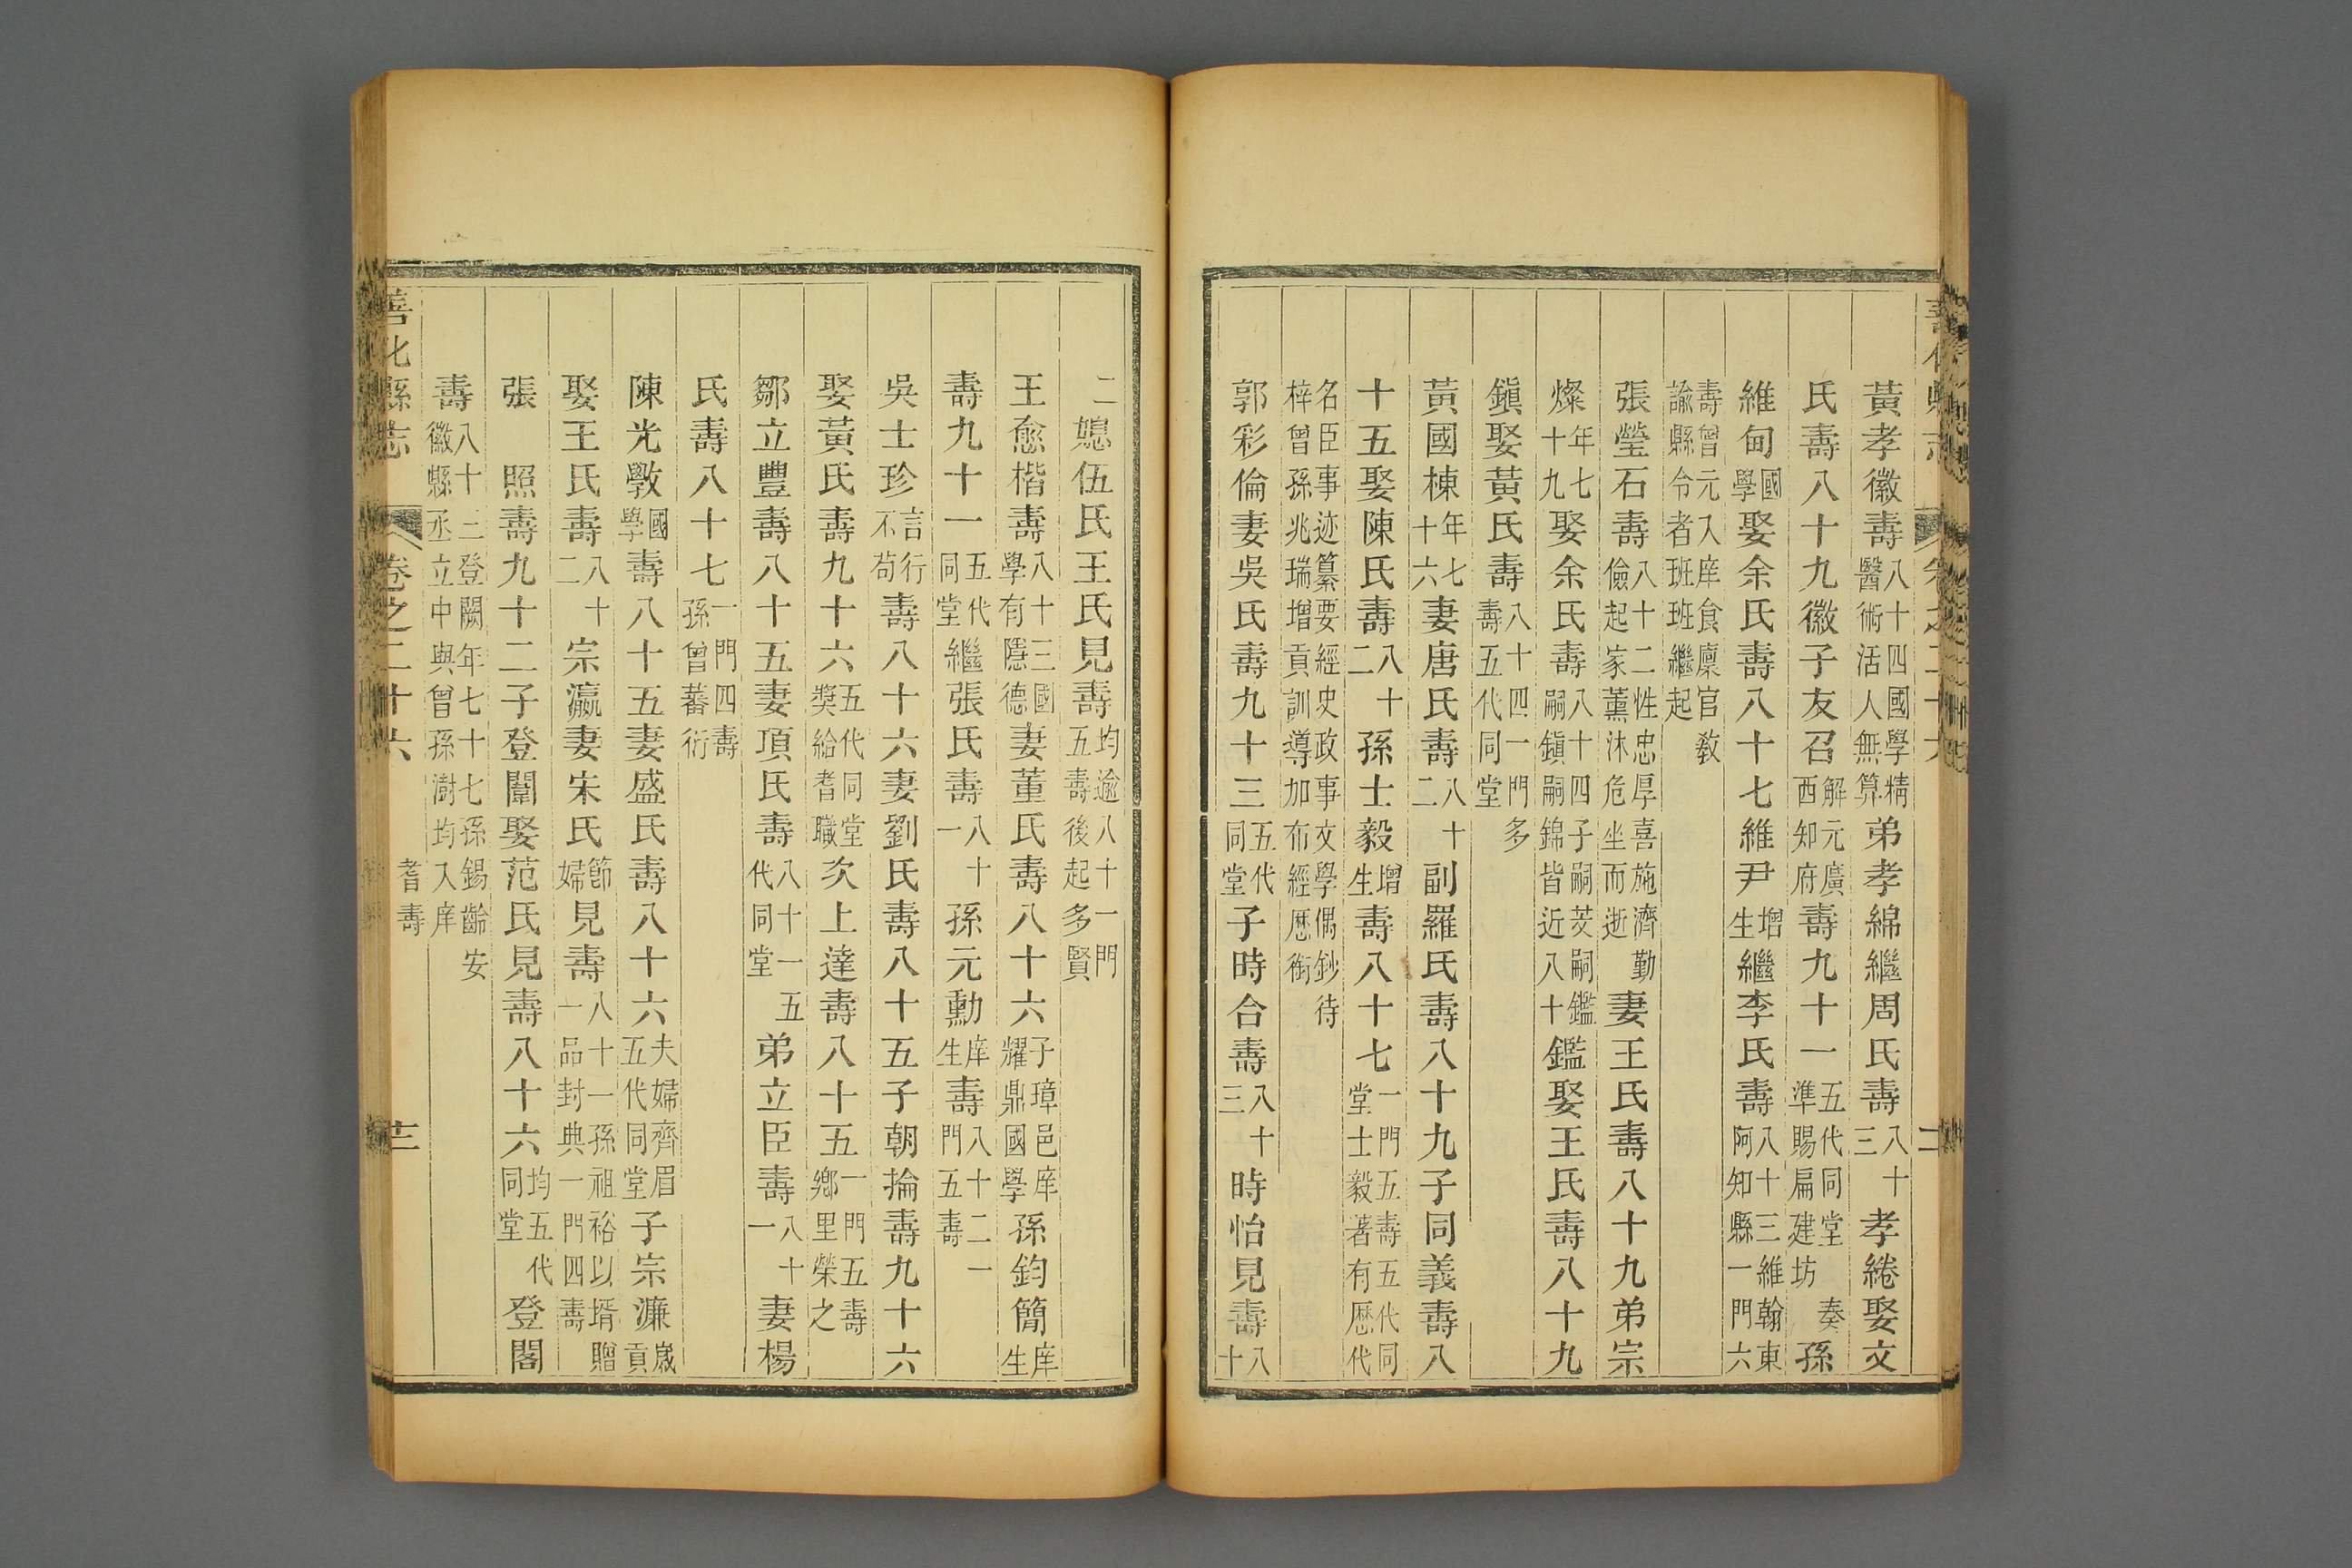 善化縣志 卷之二十六
黃孝徽壽八十四國學精醫術活人無算弟孝綿繼周氏壽八十三孝綣娶文
氏壽八十九徽子友召解元廣西知府壽九十一五代同堂奏準賜扁建坊孫
維甸國學娶余氏壽八十七維尹增生繼李氏壽八十三維翰東阿知縣一門六
壽曾元入庠食廩官教諭縣令者班班繼起
張瑩石壽八十二性忠厚喜施濟勤儉起家薰沐危坐而逝妻王氏壽八十九弟宗
燦年七十九娶余氏壽八十四子嗣茭嗣鑑嗣鎭嗣錦皆近八十鑑娶王氏壽八十九
鎭娶黃氏壽八十四一門多壽五代同堂
黃國棟年七十六妻唐氏壽八十二副羅氏壽八十九子同義壽八
十五娶陳氏壽八十二孫士毅增生壽八十七一門五壽五代同堂士毅著有歷代
名臣事迹纂要經史政事文學偶鈔待梓曾孫兆瑞增貢訓導加布經歷銜
郭彩倫妻吳氏壽九十三五代同堂子時合壽八十三時怡見壽八十
二媳伍氏王氏見壽均逾八十一門五壽後起多賢
王愈楷壽八十三國學有隱德妻董氏壽八十六子璋邑庠耀鼎國學孫鈞簡庠生
壽九十一五代同堂繼張氏壽八十一孫元勳庠生壽八十二一門五壽
吳士珍言行不苟壽八十六妻劉氏壽八十五子朝掄壽九十六
娶黃氏壽九十六五代同堂獎給耆職次上達壽八十五一門五壽鄉里榮之
鄒立豐壽八十五妻項氏壽八十一五代同堂弟立臣壽八十一妻楊
氏壽八十七一門四壽孫曾蕃衍
陳光斆國學壽八十五妻盛氏壽八十六夫婦齊眉五代同堂子宗濂歲貢
娶王氏壽八十二宗瀛妻宋氏節婦見壽八十一孫祖裕以壻贈一品封典一門四壽
張照壽九十二子登閣娶范氏見壽八十六均五代同堂登閣
壽八十二登闕年七十七孫錫齡安徽縣丞立中與曾孫澍均入庠
善化縣志 卷之二十六 耆壽